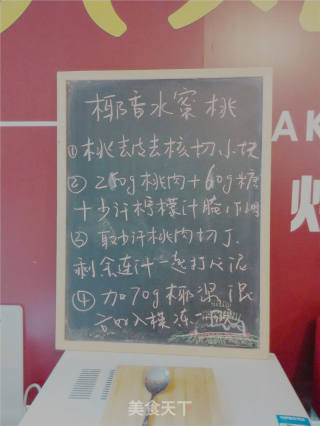 椰香水蜜桃
①桃去皮去核切小块
②250g桃肉+60g糖
+少许柠檬汁腌
③取少许桃肉切丁
剩余连汁一起打
④加70g椰浆混
入模冻一
AK
美食天下